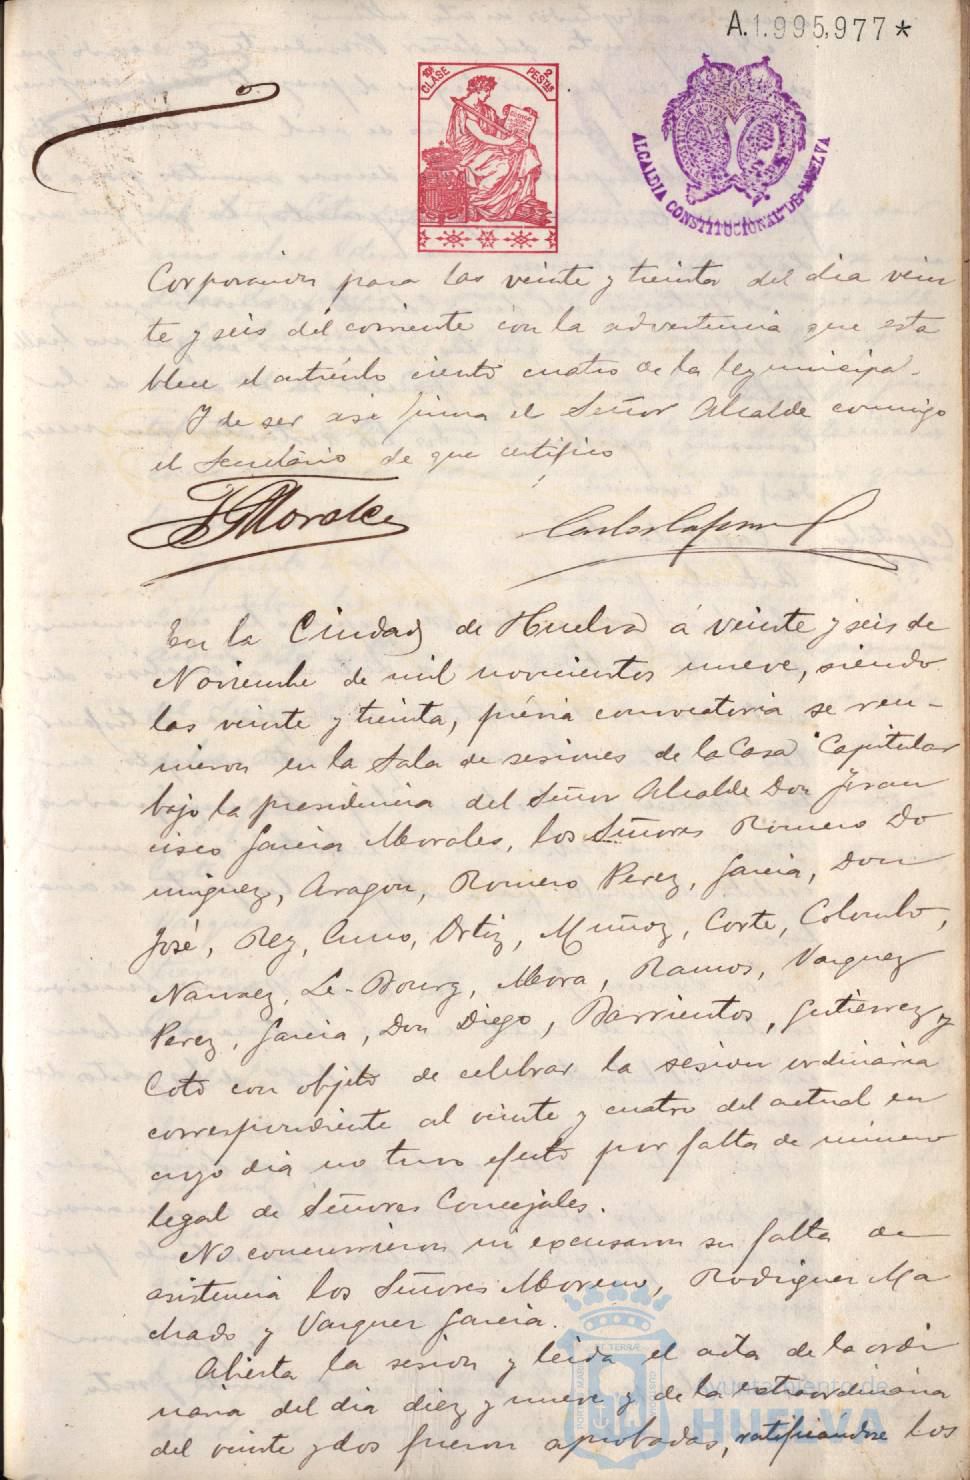 A.1.995,977*
10ª CLASE 2 PESTAS
ALCALDIA CONSTITUCIONAL DE HUELVA
Corporacion para las veinte y treinta del dia vein
te y seis del corriente con la advertencia que esta
blece el artículo ciento cuatro de la ley municipal.
Y de ser asi firma el Señor Alcalde conmigo
el Secretario de que certifico
En la Ciudad de Huelva á veinte y seis de
Noviembre de mil novecientos nueve, siendo
las veinte y treinta, prévia convocatoria se reu-
nieron en la Sala de sesiones de la Casa Capitular
bajo la presidencia del Señor Alcalde Don Fran
cisco Garcia Morales, los Señores Romero Do
minguez, Aragon, Romero Perez, Garcia, Don
José, Rey, Ortiz, Muñoz, Corte, Colombo,
Narvaez, Le-Bourg, Mora, Ramos, Vazquez
Perez, Garcia, Don Diego, Barrientos, Gutierrez y
Coto con objeto de celebrar la sesion ordinaria
correspondiente al veinte y cuatro del actual en
cuyo dia no tuvo efecto por falta de número
legal de Señores Concejales.
No concurrieron ni excusaron su falta de
asistencia los Señores Moreno, Rodriguez Ma
chado y Vazquez Garcia.
Abierta la sesion y leida el acta de la ordi
naria del dia diez y nueve y de la extraordinaria
del veinte y dos fueron aprobadas, ratificandose los
Ayuntamiento de
HUELVA